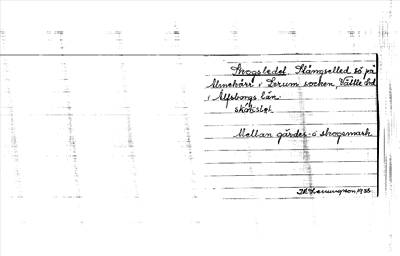 Skogsledet. Stängselled så på
Almekärr i Lerum socken, Vättle hd
i Älfsborgs län.
skogslet.
Mellan gärdes- o skogsmark
1935.